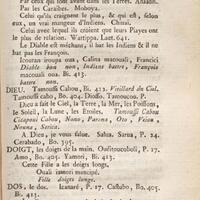 Par ceux qui sont avant dans les Terres. Anaan.
Par les Caraïbes. Moboya.
Celui qu'ils craignent le plus, & qui est, selon
eux, un vrai mangeur d'Indiens. Chinai.
Celui avec lequel ils croient que leurs Piayes ont
le plus de relation. Wattipa. Laet. 641.
Le Diable est méchant, il bat les Indiens & il ne
bat pas les François.
Icouran iroupa oua, Calina macouali, Francici
Diable bon non, Indiens battre, François
macouali oua. Bi. 413.
battre non.
DIEU. Tamoussi Cabou, Bi. 413. Vieillard du Ciel.
Tamoussi cabo, Bo. 404. Diosso. Tanoucou. P.
Dieu a fait le Ciel, la Terre, la Mer, les Poissons,
le Soleil, la Lune, les Etoiles. Tamoussi Cabou
Cicapoui Cabou, Nono Parana, Oto, Veïou
Nouna, Serica.
A Dieu, je vous salue. Salua. Sarua, P. 24.
Cerabado, Bo. 395.
DOIGT, les doigts de la main. P. 17.
Amo, Bo. 405. Yamori. Bi. 413.
Cette Fille a les doigts longs,
Ouali iamori mancipé.
Fille doigts longs.
DOS, le dos. P. 17. Bo. 405.
Bi. 413.